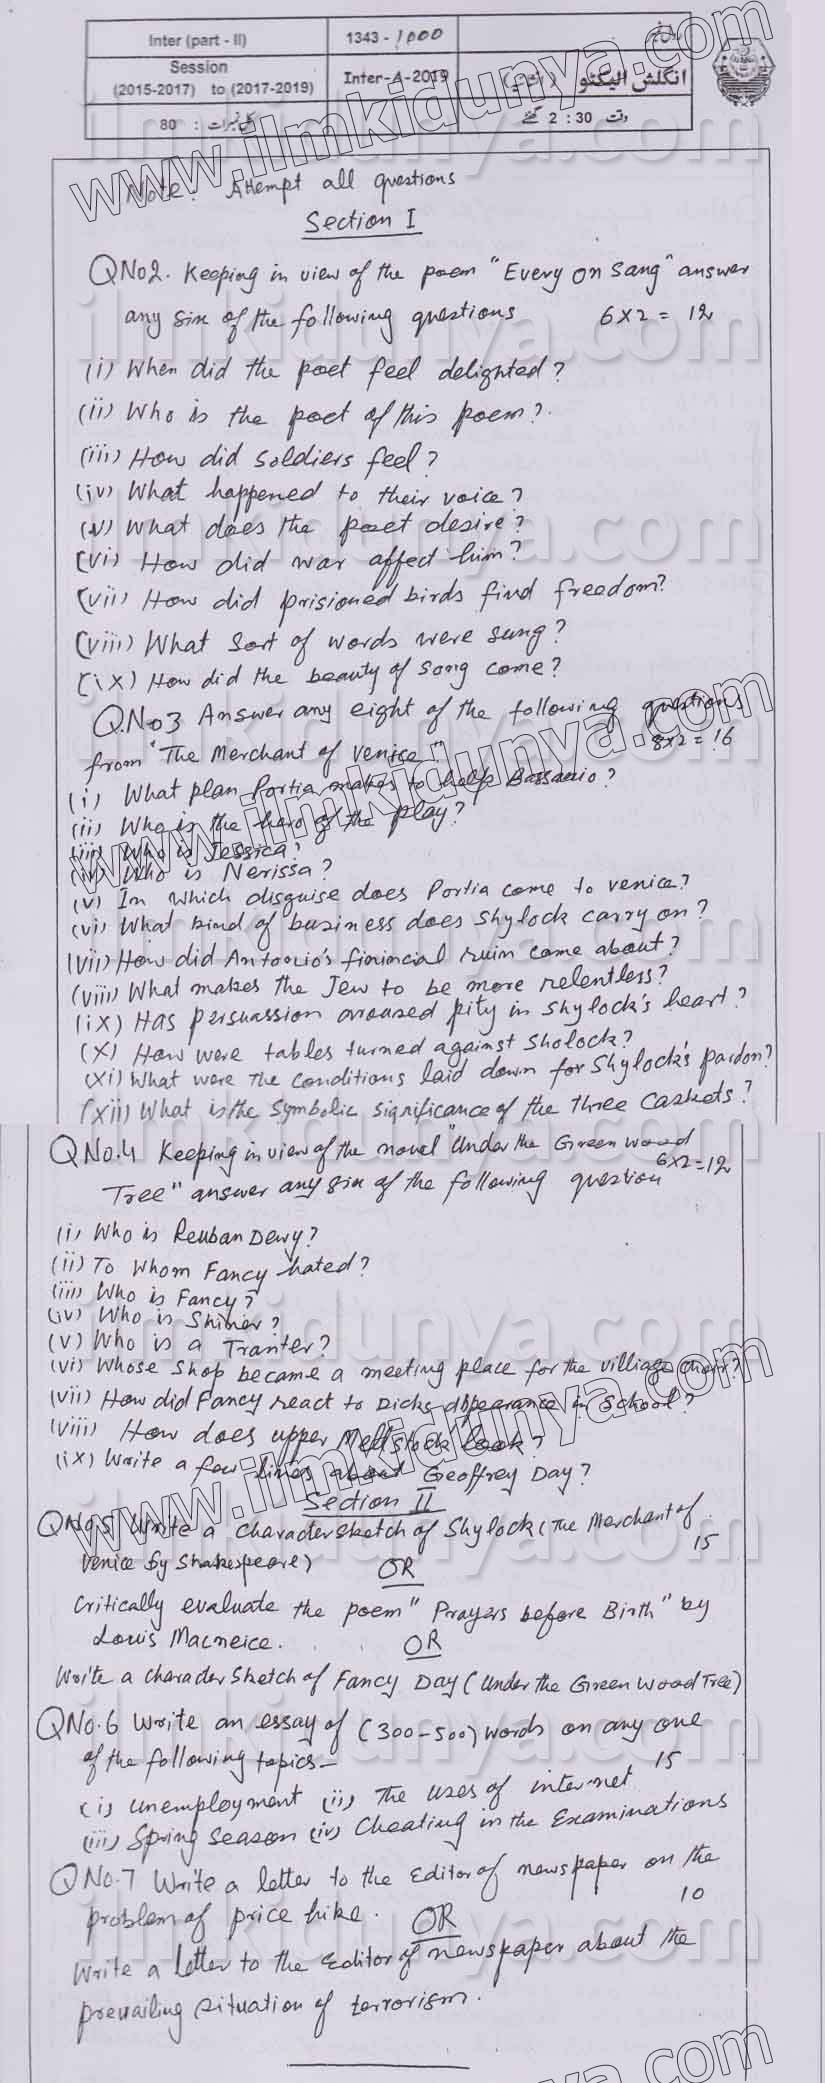 Inter (part - II)
1343 - 1000
رول نمبر
Session
(2015-2017) to (2017-2019)
Inter-A-2019
انگلش الیکٹو
80 : کل نمبرات
وقت 2 : 30 گھنٹے
Note: Attempt all questions
Section I
QNo2. Keeping in view of the poem "Every on Sang" answer
any six of the following questions 6x2 = 12
(i) When did the poet feel delighted?
(ii) Who is the poet of this poem?
(iii) How did soldiers feel?
(iv) What happened to their voice?
(v) What does the poet desire?
(vi) How did war affect him?
(vii) How did prisioned birds find freedom?
(viii) What sort of words were sung?
(ix) How did the beauty of song come?
Q.No3 Answer any eight of the following questions
from "The Merchant of Venice" 8x2 = 16
(i) What plan Portia makes to help Bassanio?
(ii) Who is the hero of the play?
(iii) Who is Jessica?
(iv) Who is Nerissa?
(v) In which disguise does Portia come to venice?
(vi) What kind of business does Shylock carry on?
(vii) How did Antonio's finincial ruin come about?
(viii) What makes the Jew to be more relentless?
(ix) Has persuassion aroused pity in Shylock's heart?
(x) How were tables turned against Sholock?
(xi) What were the conditions laid down for Shylock's pardon?
(xii) What is the symbolic significance of the three caskets?
QNo.4 Keeping in view of the novel "Under the Green wood
Tree" answer any six of the following question 6x2=12
(i) Who is Reuban Dewy?
(ii) To Whom Fancy hated?
(iii) Who is Fancy?
(iv) Who is Shiner?
(v) Who is a Tranter?
(vi) Whose shop became a meeting place for the villiage choir?
(vii) How did Fancy react to Dicks appearance in School?
(viii) How does upper Mellstock look?
(ix) Write a few lines about Geoffrey Day?
Section II
QNo.5 Write a character sketch of Shylock (The Merchant of
Venice by Shakespeare) 15
OR
Critically evaluate the poem "Prayers before Birth" by
Louis Macneice.
OR
Write a character Sketch of Fancy Day (Under the Green Wood Tree)
QNo.6 Write an essay of (300-500) words on any one
of the following topics- 15
(i) unemployment (ii) The uses of internet
(iii) Spring season (iv) Cheating in the Examinations
QNo.7 Write a letter to the Editor of newspaper on the
problem of price hike. 10
OR
Write a letter to the Editor of newspaper about the
prevailing situation of terrorism.
www.ilmkidunya.com
www.ilmkidunya.com
www.ilmkidunya.com
www.ilmkidunya.com